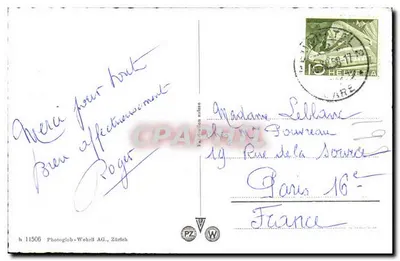 Merci pour tout
Bien affectueusement
Roger
Madame Leblanc
19 Rue de la Source
Paris 16e
France
10
HELVETIA
GARE
CPARAMA
PZ W
b 11506 Photoglob-Wehrli AG., Zürich